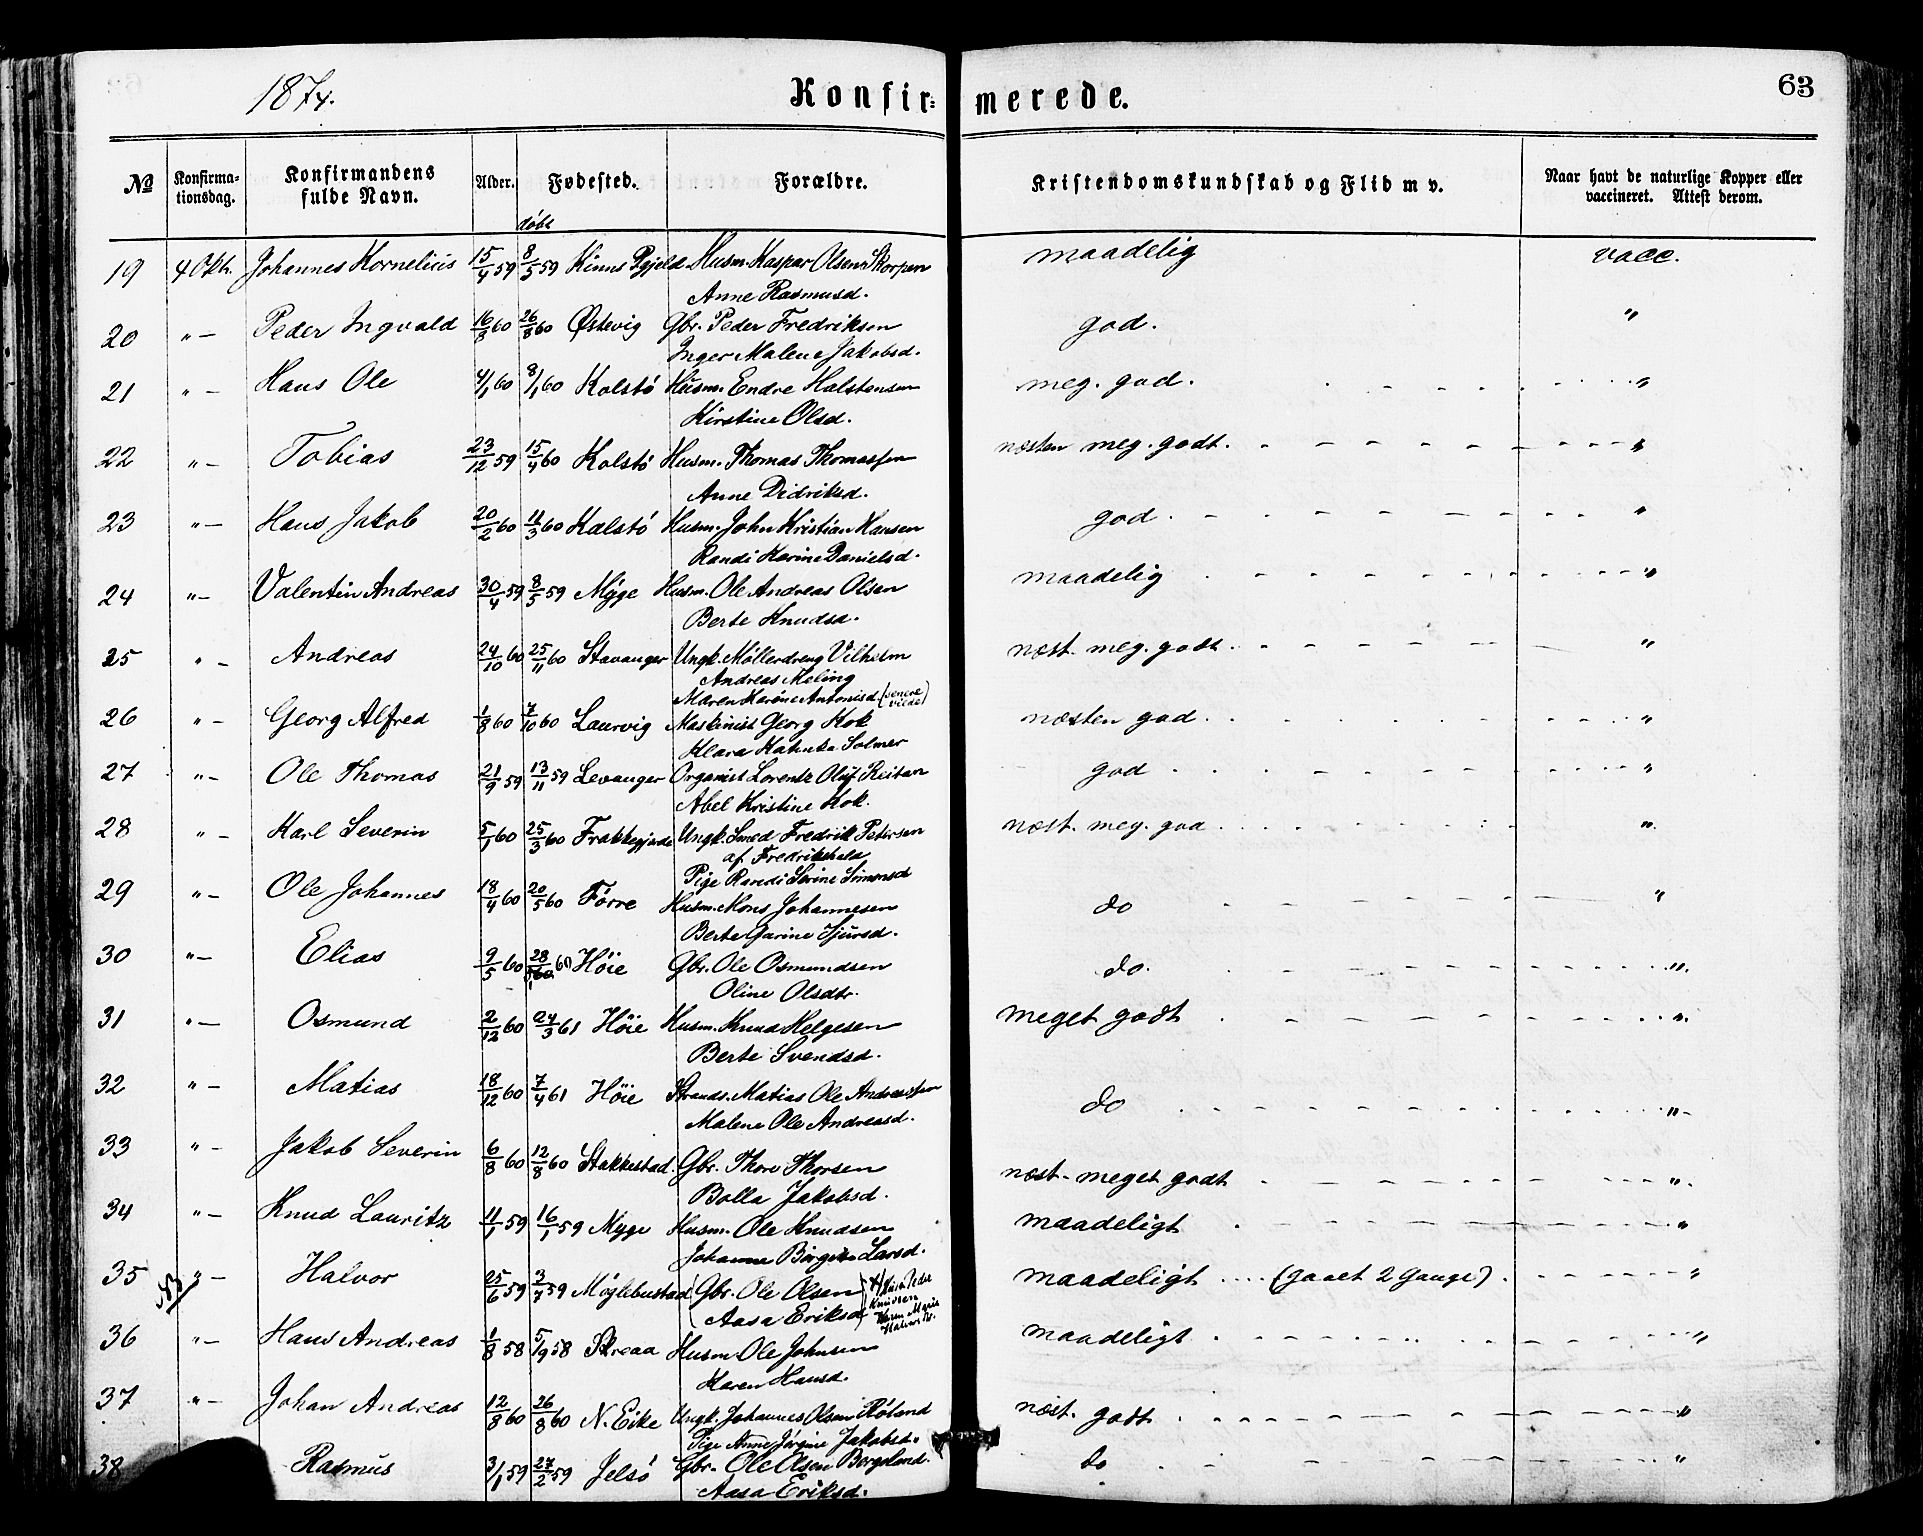 1874.
Konfir=merede.
63
No
Konfirma-
tionsdag.
Konfirmandens
fulde Navn.
Alder.
Fødested.
Forældre.
Kristendomskundskab og Flid m v.
Naar havt de naturlige Kopper eller
vaccineret. Attest derom.
døbt
19 4 Okt. Johannes Kornelius 15/4 59 8/5 59 Kinns Pgjeld Husm. Kaspar Olsen Skorpen maadelig vacc.
Anne Rasmusd.
20 " — Peder Ingvald 16/8 60 26/8 60 Østevig Gbr. Peder Fredriksen god. "
Inger Malene Jakobsd.
21 " — Hans Ole 4/1 60 8/1 60 Kolstö Husm. Endre Halstensen meg. god. "
Kirstine Olsd.
22 " — Tobias 23/12 59 15/4 60 Kolstö Husm. Thomas Thomassen næsten meg. godt. "
Anne Didriksd.
23 " — Hans Jakob 20/2 60 11/3 60 Kalstö Husm. John Kristian Hansen god. "
Randi Karine Danielsd.
24 " — Valentin Andreas 30/4 59 8/5 59 Myge Husm. Ole Andreas Olsen maadelig "
Berte Knudsd.
25 " — Andreas 24/10 60 25/11 60 Stavanger Ungk. Møllerdreng Vilhelm næst. meg. godt. "
Andreas Meling
Maren Karine Antonisd. (senere viede)
26 " — Georg Alfred 1/8 60 7/10 60 Laurvig Maskinist Georg Kok næsten god. "
Klara Solmer
27 " — Ole Thomas 21/9 59 13/11 59 Levanger Organist Lorentz Oluf Reitan god "
Abel Kristine Kok.
28 " — Karl Severin 5/1 60 25/3 60 Frakkagjerde Ungk. Smed Fredrik Petersen næst. meg. god "
af Fredrikshald
Pige Randi Serine Simonsd
29 " — Ole Johannes 18/4 60 20/5 60 Førre Husm. Mons Johannesen do "
Berte Garine Sjursd.
30 " — Elias 9/5 60 28/ 60 Höie Gbr. Ole Osmundsen do. "
Oline Olsdtr.
31 " — Osmund 2/12 60 24/3 61 Höie Husm. Knud Helgesen meget godt "
Berte Svendsd.
32 " — Matias 18/12 60 7/4 61 Höie Strands. Matias Ole Andreassen do "
Malene Ole Andreasd.
33 " — Jakob Severin 6/8 60 12/8 60 Stakkestad. Gbr. Thore Thorsen næst. meget godt "
Bolla Jakobsd.
34 " — Knud Lauritz 11/1 59 16/1 59 Myge Husm. Ole Knudsen maadeligt "
Johanne Birgitte Larsd.
35 NB " — Halvor 25/6 59 3/7 59 Møglebustad (Gbr. Ole Olsen) maadeligt .... (gaaet 2 Gange). "
(Aasa Eriksd) Peder
Knudsen
Karen Marie
36 " — Hans Andreas 1/8 58 5/9 58 Skreaa Husm. Ole Johnsen maadeligt "
Karen Hansd.
37 " — Johan Andreas 12/8 60 26/8 60 N. Eike Ungk. Johannes Olsen Röland næst. godt "
Pige Anne Jörgine Jakobsd.
38 Rasmus 3/1 59 27/2 59 Jelsö Gbr. Ole Olsen Bergeland. do "
Aasa Eriksd.